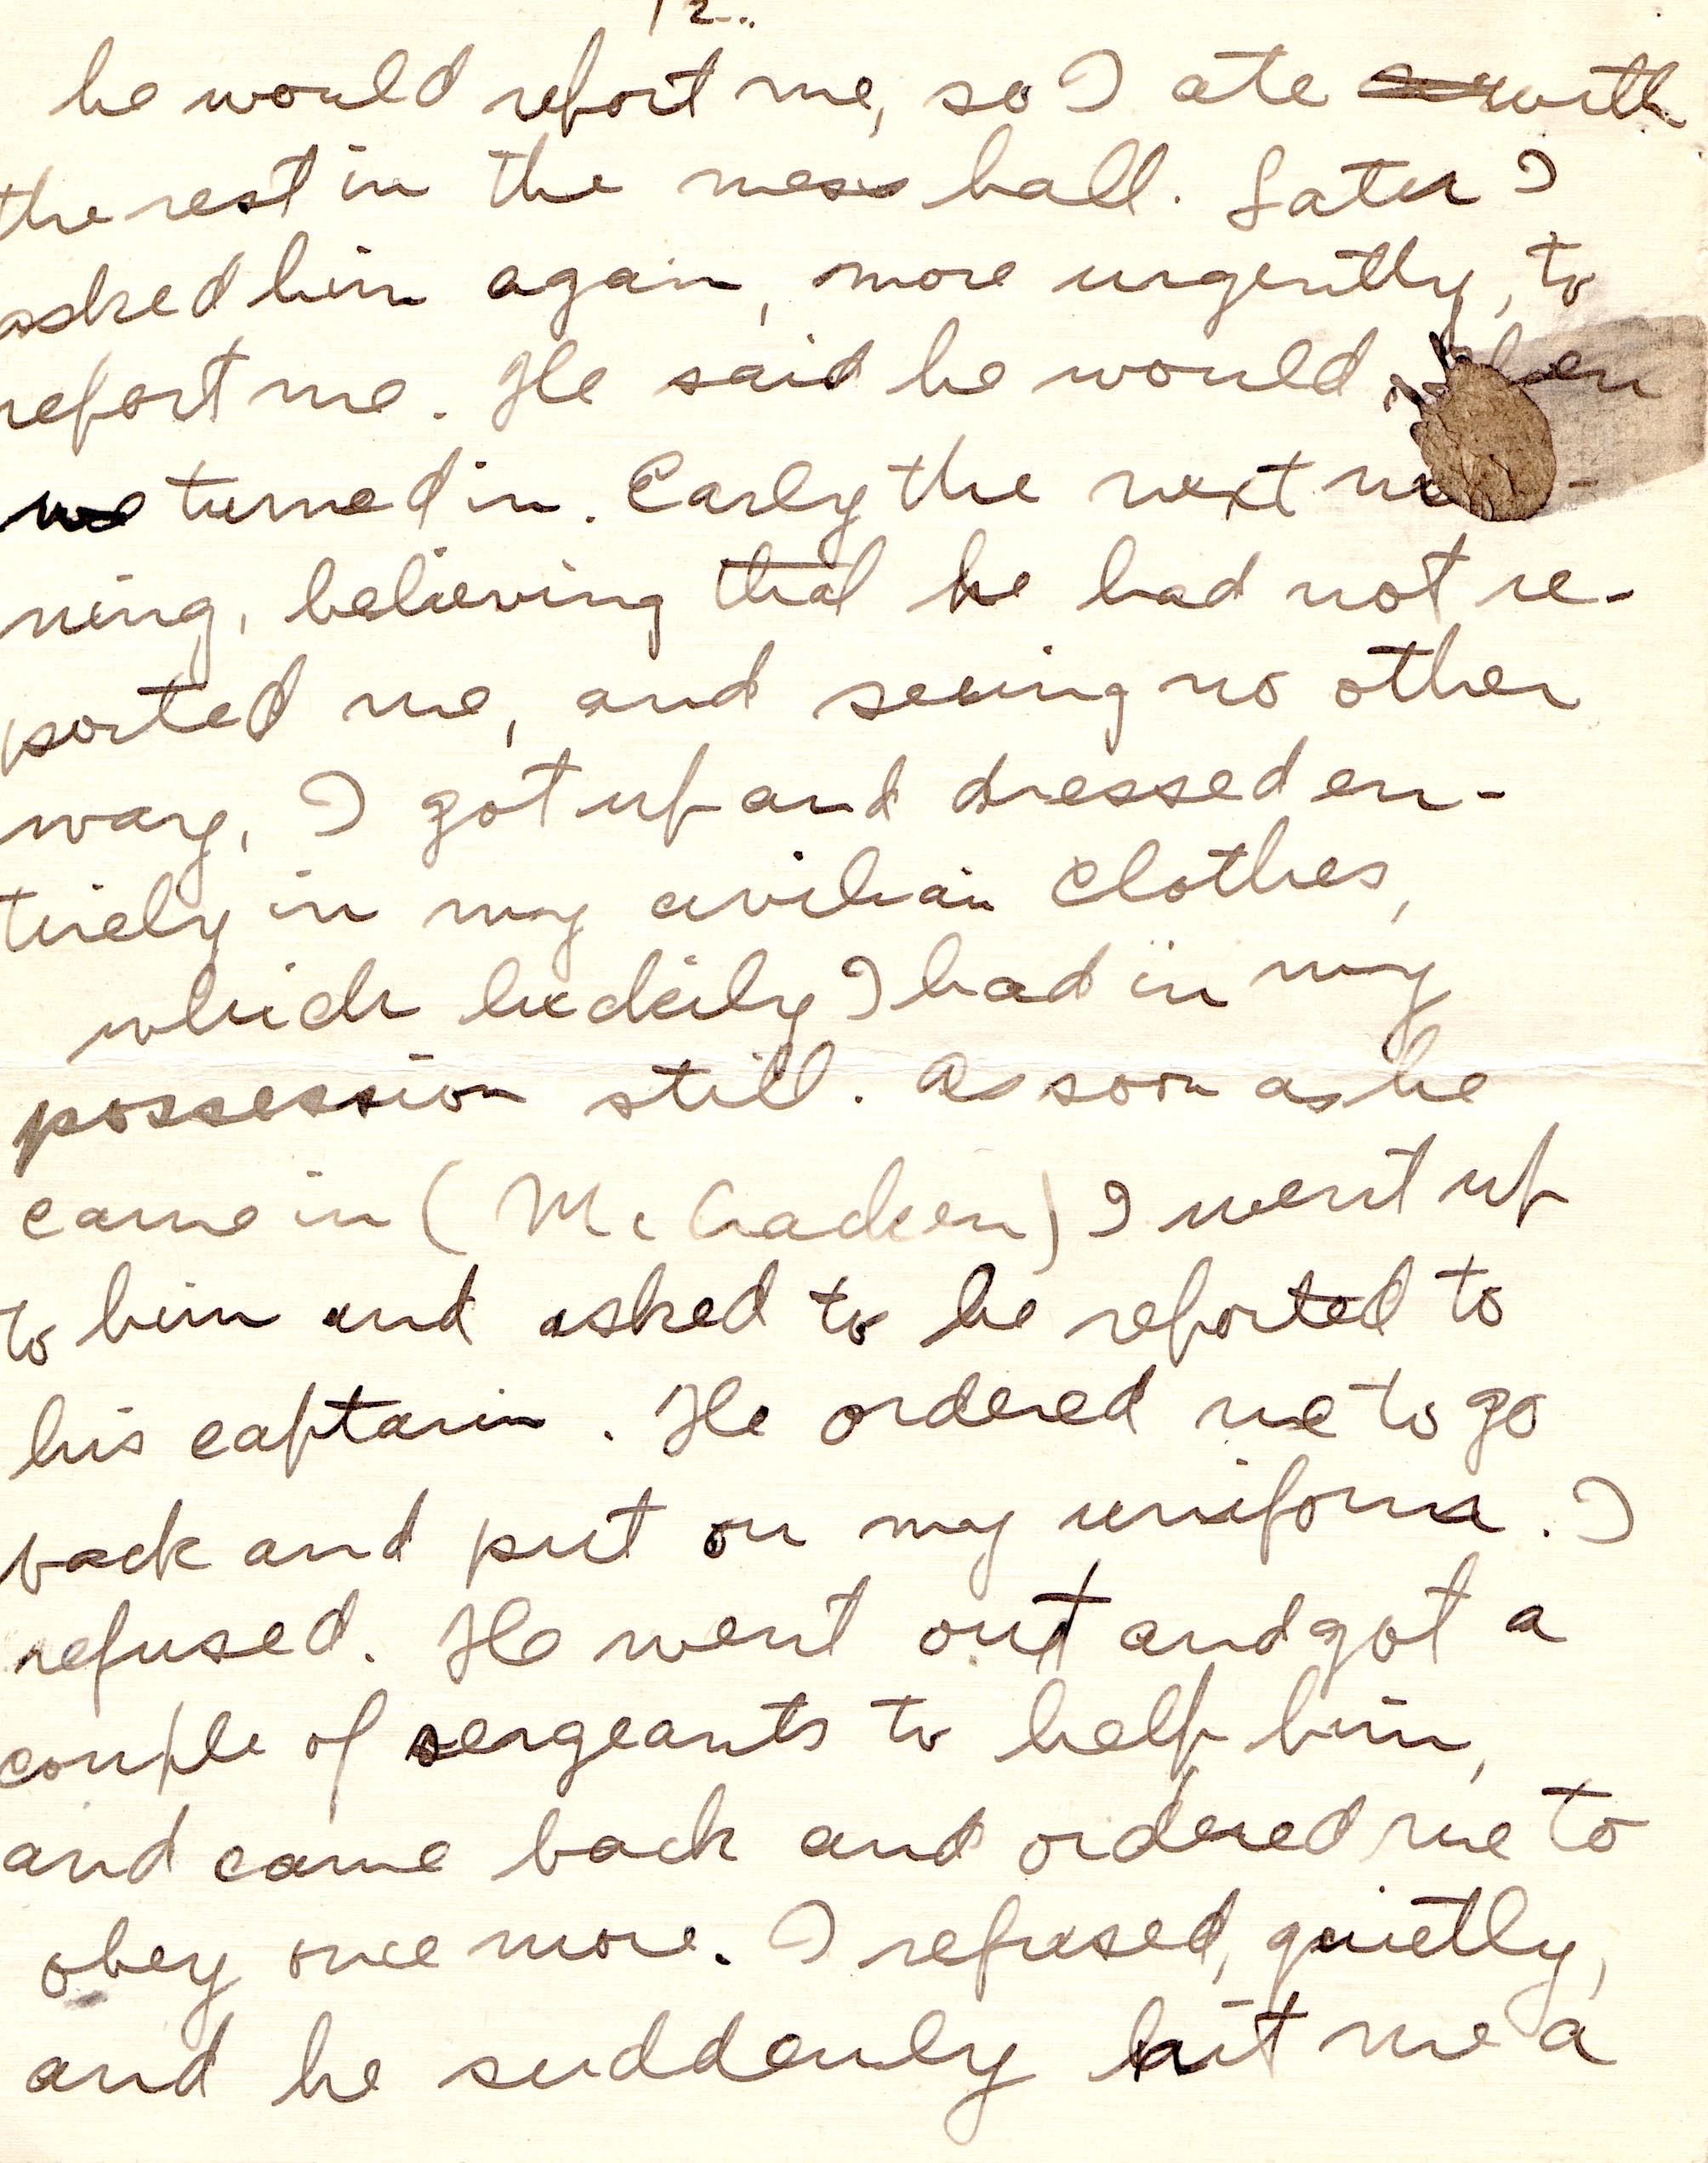 12..
he would report me, so I ate with
the rest in the mess hall. Later I
asked him again, more urgently, to
report me. He said he would when
we turned in. Early the next mor-
ning, believing that he had not re-
ported me, and seeing no other
way, I got up and dressed en-
tirely in my civilian clothes,
which luckily I had in my
possession still. As soon as he
came in (McCracken) I went up
to him and asked to be reported to
his captain. He ordered me to go
back and put on my uniform. I
refused. He went out and got a
couple of sergeants to help him,
and came back and ordered me to
obey once more. I refused, quietly,
and he suddenly hit me a